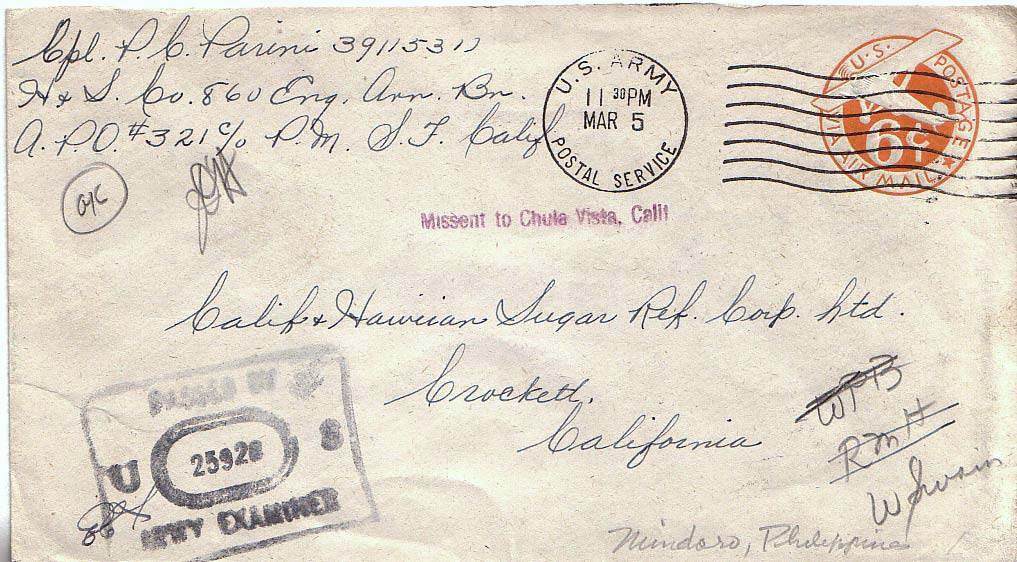 Cpl. P. C. Parini 39115317
H & S. Co. 860 Eng. Avn. Bn.
A. P.O. #321 c/o P.M. S.F. Calif
U.S. ARMY
11 30 PM
MAR 5
POSTAL SERVICE
U.S. POSTAGE
VIA AIR MAIL
6¢
Missent to Chula Vista, Calif
Calif & Hawiian Sugar Ref. Corp. Ltd.
Crockett,
California
PASSED BY
U 25928 S
ARMY EXAMINER
WPB
RMH
Mindoro, Philippines